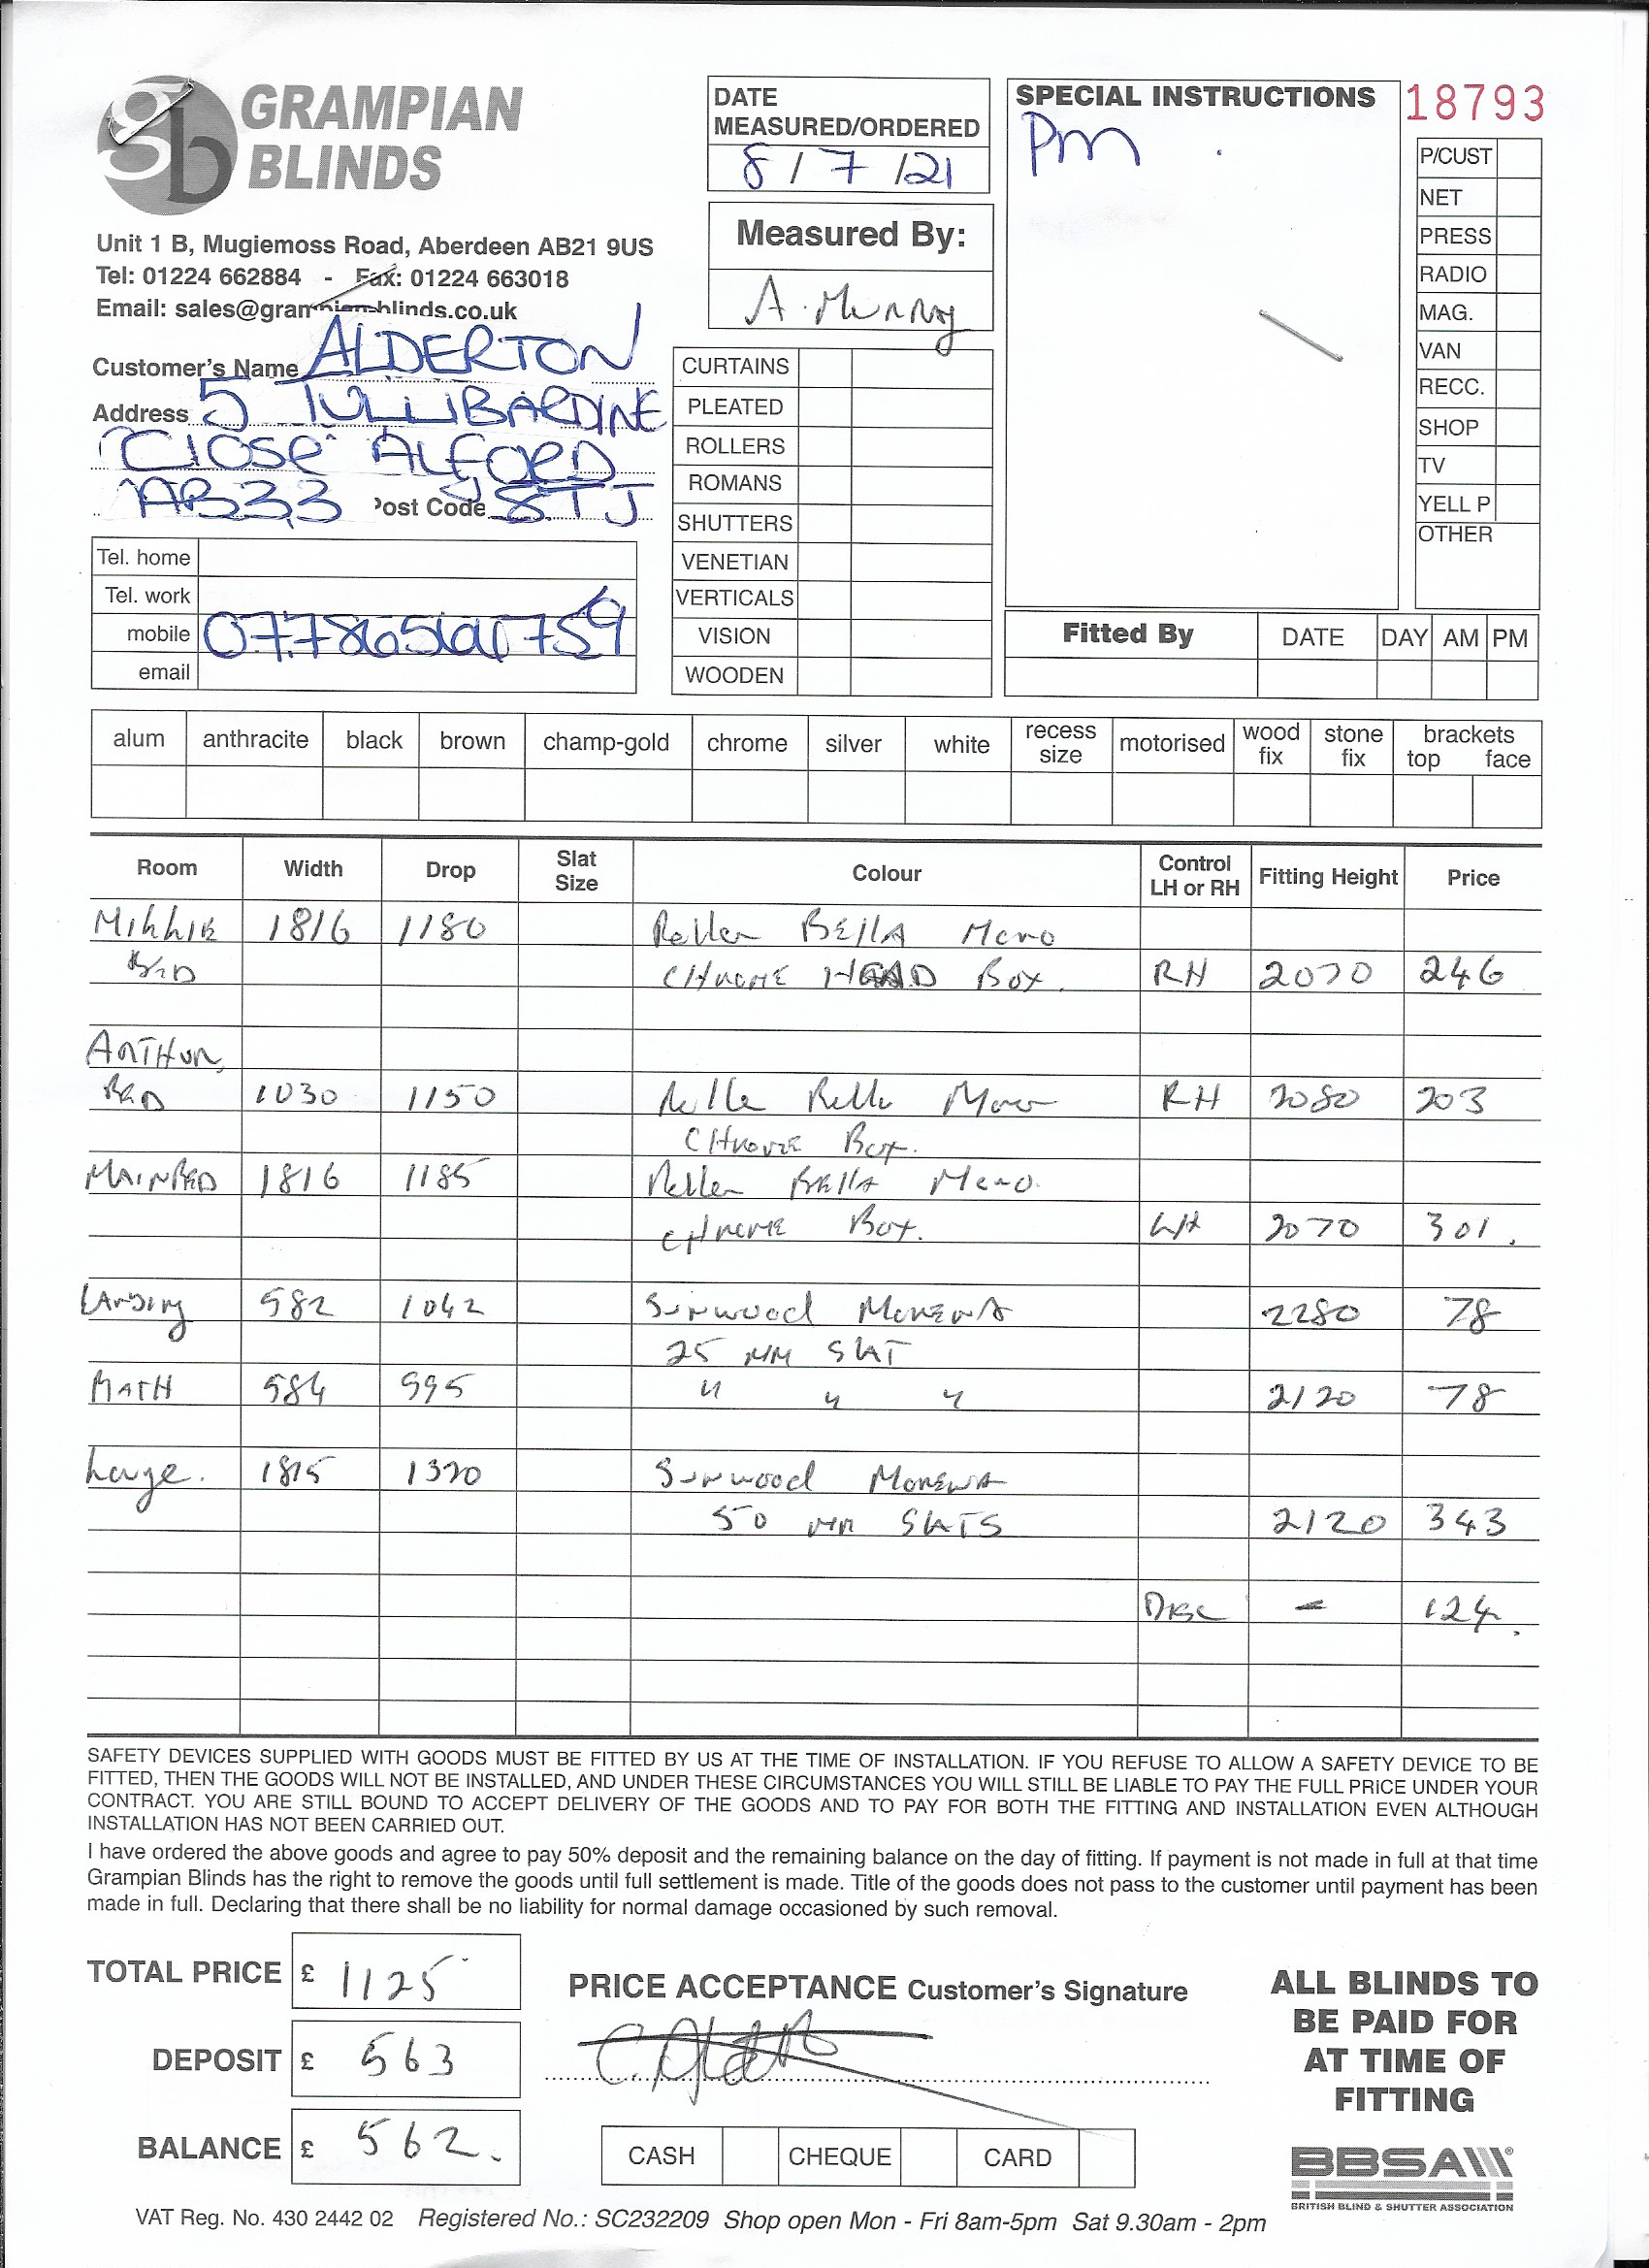 gb GRAMPIAN BLINDS
Unit 1 B, Mugiemoss Road, Aberdeen AB21 9US
Tel: 01224 662884 - Fax: 01224 663018
Email: sales@grampianblinds.co.uk
Customer's Name ALDERTON
Address 5 TULLIBARDINE
Close ALFORD
AB33 Post Code 8TJ
Tel. home
Tel. work
mobile
email
DATE
MEASURED/ORDERED
8/7/21
Measured By:
A. Murray
CURTAINS
PLEATED
ROLLERS
ROMANS
SHUTTERS
VENETIAN
VERTICALS
VISION
WOODEN
SPECIAL INSTRUCTIONS
Pm
18793
P/CUST
NET
PRESS
RADIO
MAG.
VAN
RECC.
SHOP
TV
YELL P
OTHER
Fitted By DATE DAY AM PM
alum anthracite black brown champ-gold chrome silver white recess size motorised wood fix stone fix brackets top face
Room Width Drop Slat Size Colour Control LH or RH Fitting Height Price
1816 1180 Roller BEllA Mono
BED CHROME HEAD Box. RH 2070 246
ARTHUR
BED 1030 1150 Rolle Bella Mono RH 2080 203
CHROME Box.
MAINBED 1816 1185 Roller BEllA Mono.
CHROME Box. LH 2070 301.
LANDING 582 1042 Sunwood 2280 78
25 MM SLAT
BATH 584 995 " " " 2120 78
Lounge. 1815 1320 Sunwood
50 MM SLATS 2120 343
DISC - 124.
SAFETY DEVICES SUPPLIED WITH GOODS MUST BE FITTED BY US AT THE TIME OF INSTALLATION. IF YOU REFUSE TO ALLOW A SAFETY DEVICE TO BE
FITTED, THEN THE GOODS WILL NOT BE INSTALLED, AND UNDER THESE CIRCUMSTANCES YOU WILL STILL BE LIABLE TO PAY THE FULL PRICE UNDER YOUR
CONTRACT. YOU ARE STILL BOUND TO ACCEPT DELIVERY OF THE GOODS AND TO PAY FOR BOTH THE FITTING AND INSTALLATION EVEN ALTHOUGH
INSTALLATION HAS NOT BEEN CARRIED OUT.
I have ordered the above goods and agree to pay 50% deposit and the remaining balance on the day of fitting. If payment is not made in full at that time
Grampian Blinds has the right to remove the goods until full settlement is made. Title of the goods does not pass to the customer until payment has been
made in full. Declaring that there shall be no liability for normal damage occasioned by such removal.
TOTAL PRICE £ 1125
DEPOSIT £ 563
BALANCE £ 562.
PRICE ACCEPTANCE Customer's Signature
CASH CHEQUE CARD
ALL BLINDS TO
BE PAID FOR
AT TIME OF
FITTING
BBSA®
BRITISH BLIND & SHUTTER ASSOCIATION
VAT Reg. No. 430 2442 02 Registered No.: SC232209 Shop open Mon - Fri 8am-5pm Sat 9.30am - 2pm